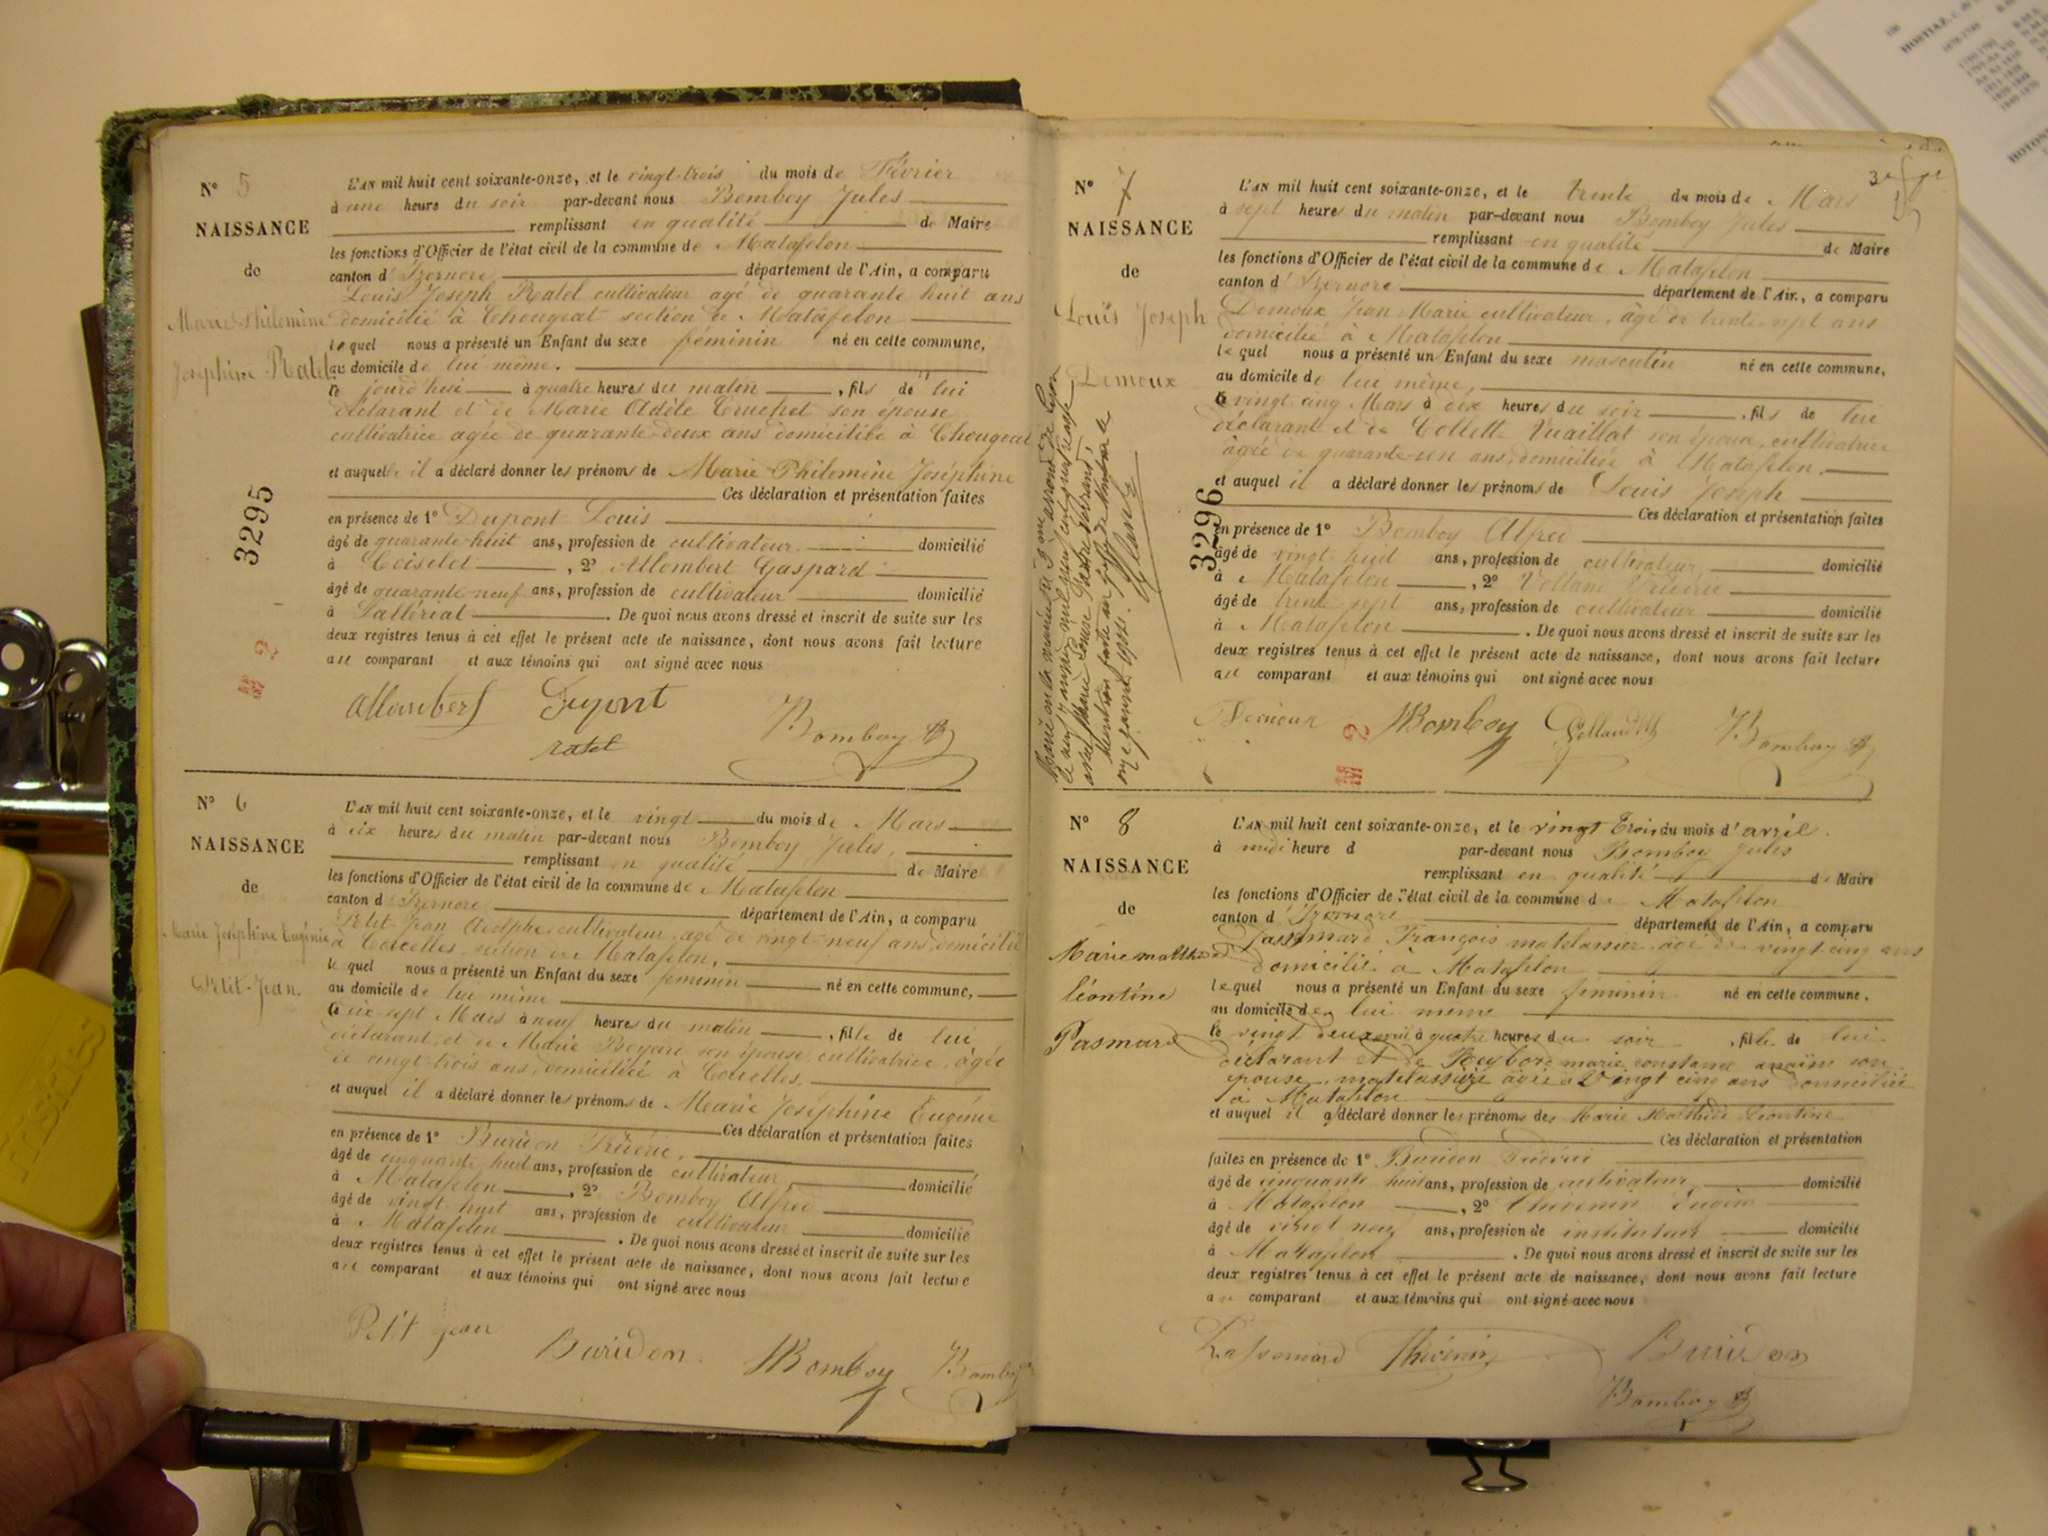 N° 5
NAISSANCE
de
Marie Philomène
Joséphine Ratel
3295
L'AN mil huit cent soixante-onze, et le vingt-trois du mois de Février
à une heure du soir par-devant nous Bomboy Jules
remplissant en qualité de Maire
les fonctions d'Officier de l'état civil de la commune de Matafelon
canton d'Izernore département de l'Ain, a comparu
Louis Joseph Ratel cultivateur agé de quarante huit ans
domicilié à Chougeat section de Matafelon
lequel nous a présenté un Enfant du sexe féminin né en cette commune,
au domicile de lui même.
le jourd'hui à quatre heures du matin, fils de lui
déclarant et de Marie Adèle Truchet son épouse
cultivatrice agée de quarante-deux ans domiciliée à Chougeat
et auquel il a déclaré donner les prénoms de Marie Philomène Joséphine
Ces déclaration et présentation faites
en présence de 1° Dupont Louis
âgé de quarante-huit ans, profession de cultivateur domicilié
à Coiselet, 2° Allombert Gaspard
âgé de quarante-neuf ans, profession de cultivateur domicilié
à . De quoi nous avons dressé et inscrit de suite sur les
deux registres tenus à cet effet le présent acte de naissance, dont nous avons fait lecture
au comparant et aux témoins qui ont signé avec nous
Allombert Dupont
ratel
Bomboy
N° 6
NAISSANCE
de
Marie Joséphine Eugénie
Petit-Jean.
L'AN mil huit cent soixante-onze, et le vingt du mois de Mars
à dix heures du matin par-devant nous Bomboy Jules,
remplissant en qualité de Maire
les fonctions d'Officier de l'état civil de la commune de Matafelon
canton d'Izernore département de l'Ain, a comparu
Petit-Jean Adolphe cultivateur, agé de vingt-neuf ans, domicilié
à Corcelles section de Matafelon,
lequel nous a présenté un Enfant du sexe féminin né en cette commune,
au domicile de lui même
le dix-sept Mars à neuf heures du matin, fille de lui
déclarant, et de Marie son épouse, cultivatrice, âgée
de vingt-trois ans, domiciliée à Corcelles,
et auquel il a déclaré donner les prénoms de Marie Joséphine Eugénie
Ces déclaration et présentation faites
en présence de 1° Buridon Frédéric,
âgé de cinquante huit ans, profession de cultivateur, domicilié
à Matafelon, 2° Bomboy Alfred
âgé de vingt-huit ans, profession de cultivateur domicilié
à Matafelon. De quoi nous avons dressé et inscrit de suite sur les
deux registres tenus à cet effet le présent acte de naissance, dont nous avons fait lecture
au comparant et aux témoins qui ont signé avec nous
Petit jean Buridon Bomboy Bomboy
N° 7
NAISSANCE
de
Louis Joseph
Demoux
3296
L'AN mil huit cent soixante-onze, et le trente du mois de Mars
à sept heures du matin par-devant nous Bomboy Jules
remplissant en qualité de Maire
les fonctions d'Officier de l'état civil de la commune de Matafelon
canton d'Izernore département de l'Ain, a comparu
Demoux Jean Marie cultivateur, âgé de trente-sept ans
domicilié à Matafelon
lequel nous a présenté un Enfant du sexe masculin né en cette commune,
au domicile de lui même,
le vingt cinq Mars à dix heures du soir, fils de lui
déclarant et de Collette Vuaillat son épouse, cultivatrice
âgée de quarante-un ans, domiciliée à Matafelon,
et auquel il a déclaré donner les prénoms de Louis Joseph
Ces déclaration et présentation faites
en présence de 1° Bomboy Alfred
âgé de vingt-huit ans, profession de cultivateur domicilié
à Matafelon, 2° Frédéric
âgé de trente sept ans, profession de cultivateur domicilié
à Matafelon. De quoi nous avons dressé et inscrit de suite sur les
deux registres tenus à cet effet le présent acte de naissance, dont nous avons fait lecture
au comparant et aux témoins qui ont signé avec nous
Demoux Bomboy Bomboy
N° 8
NAISSANCE
de
Marie mathilde
léontine
Pasmard
L'AN mil huit cent soixante-onze, et le vingt trois du mois d'avril.
à midi heure d par-devant nous Bomboy Jules
remplissant en qualité de Maire
les fonctions d'Officier de l'état civil de la commune de Matafelon
canton d'Izernore département de l'Ain, a comparu
François matelassier agé de vingt cinq ans
domicilié à Matafelon
lequel nous a présenté un Enfant du sexe féminin né en cette commune,
au domicile de lui même
le vingt deux avril à quatre heures du soir, fille de lui
déclarant et de marie son
épouse matelassière agée de vingt cinq ans domiciliée
à Matafelon
et auquel il a déclaré donner les prénoms de Marie Mathilde Léontine
Ces déclaration et présentation
faites en présence de 1° Buridon Frédéric
âgé de cinquante huit ans, profession de cultivateur domicilié
à Matafelon, 2° Thévenin Eugène
âgé de vingt neuf ans, profession de instituteur domicilié
à Matafelon. De quoi nous avons dressé et inscrit de suite sur les
deux registres tenus à cet effet le présent acte de naissance, dont nous avons fait lecture
au comparant et aux témoins qui ont signé avec nous
Thévenin Buridon
Bomboy